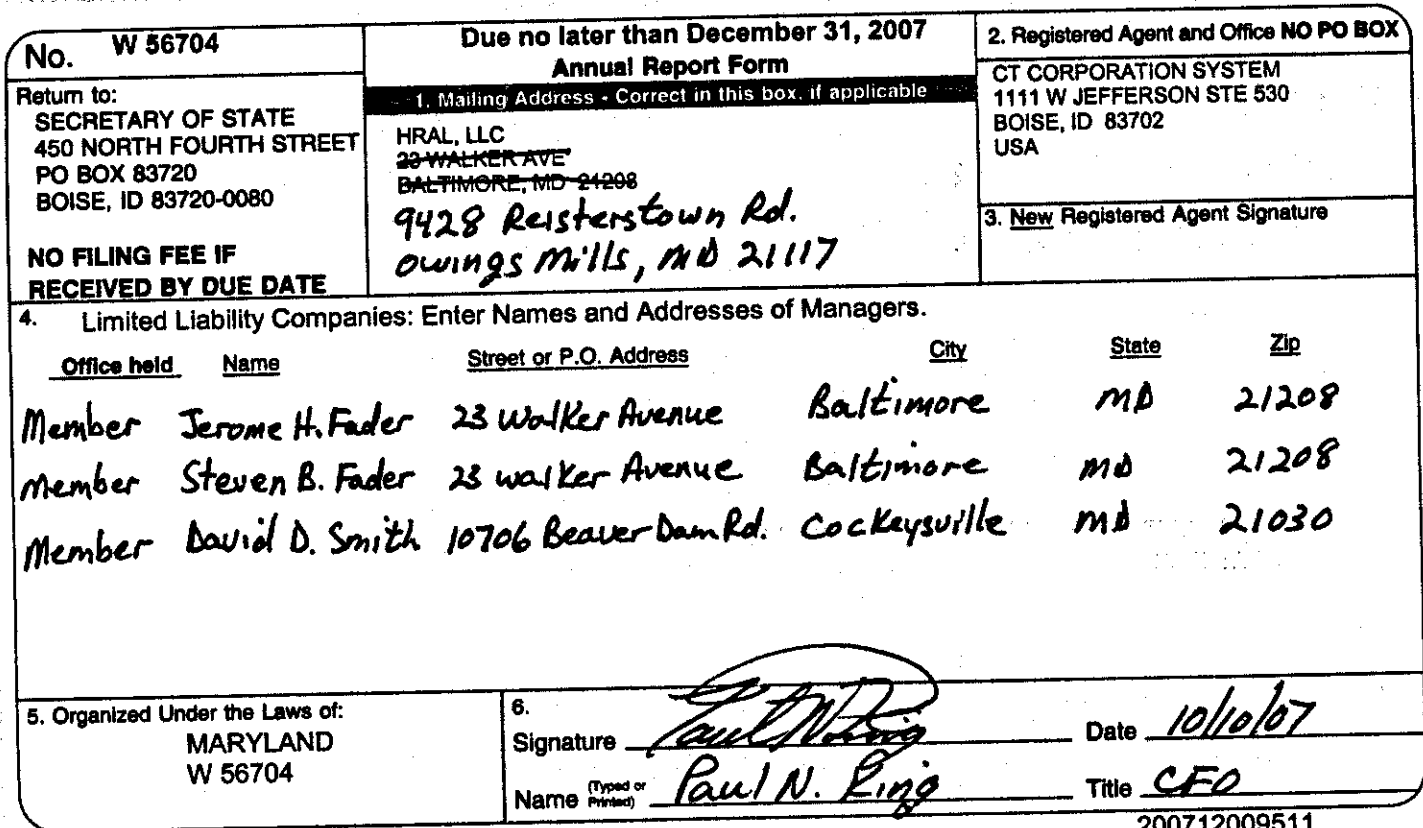 No. W 56704
Return to:
SECRETARY OF STATE
450 NORTH FOURTH STREET
PO BOX 83720
BOISE, ID 83720-0080
NO FILING FEE IF
RECEIVED BY DUE DATE
Due no later than December 31, 2007
Annual Report Form
1. Mailing Address - Correct in this box, if applicable
HRAL, LLC
23 WALKER AVE
BALTIMORE, MD 21208
9428 Reisterstown Rd.
Owings Mills, MD 21117
2. Registered Agent and Office NO PO BOX
CT CORPORATION SYSTEM
1111 W JEFFERSON STE 530
BOISE, ID 83702
USA
3. New Registered Agent Signature
4. Limited Liability Companies: Enter Names and Addresses of Managers.
Office held Name Street or P.O. Address City State Zip
Member Jerome H. Fader 23 Walker Avenue Baltimore MD 21208
Member Steven B. Fader 23 Walker Avenue Baltimore MD 21208
Member David D. Smith 10706 Beaver Dam Rd. Cockeysville MD 21030
5. Organized Under the Laws of:
MARYLAND
W 56704
6.
Signature Paul N. Ring Date 10/10/07
Name (Typed or Printed) Paul N. Ring Title CFO
200712009511